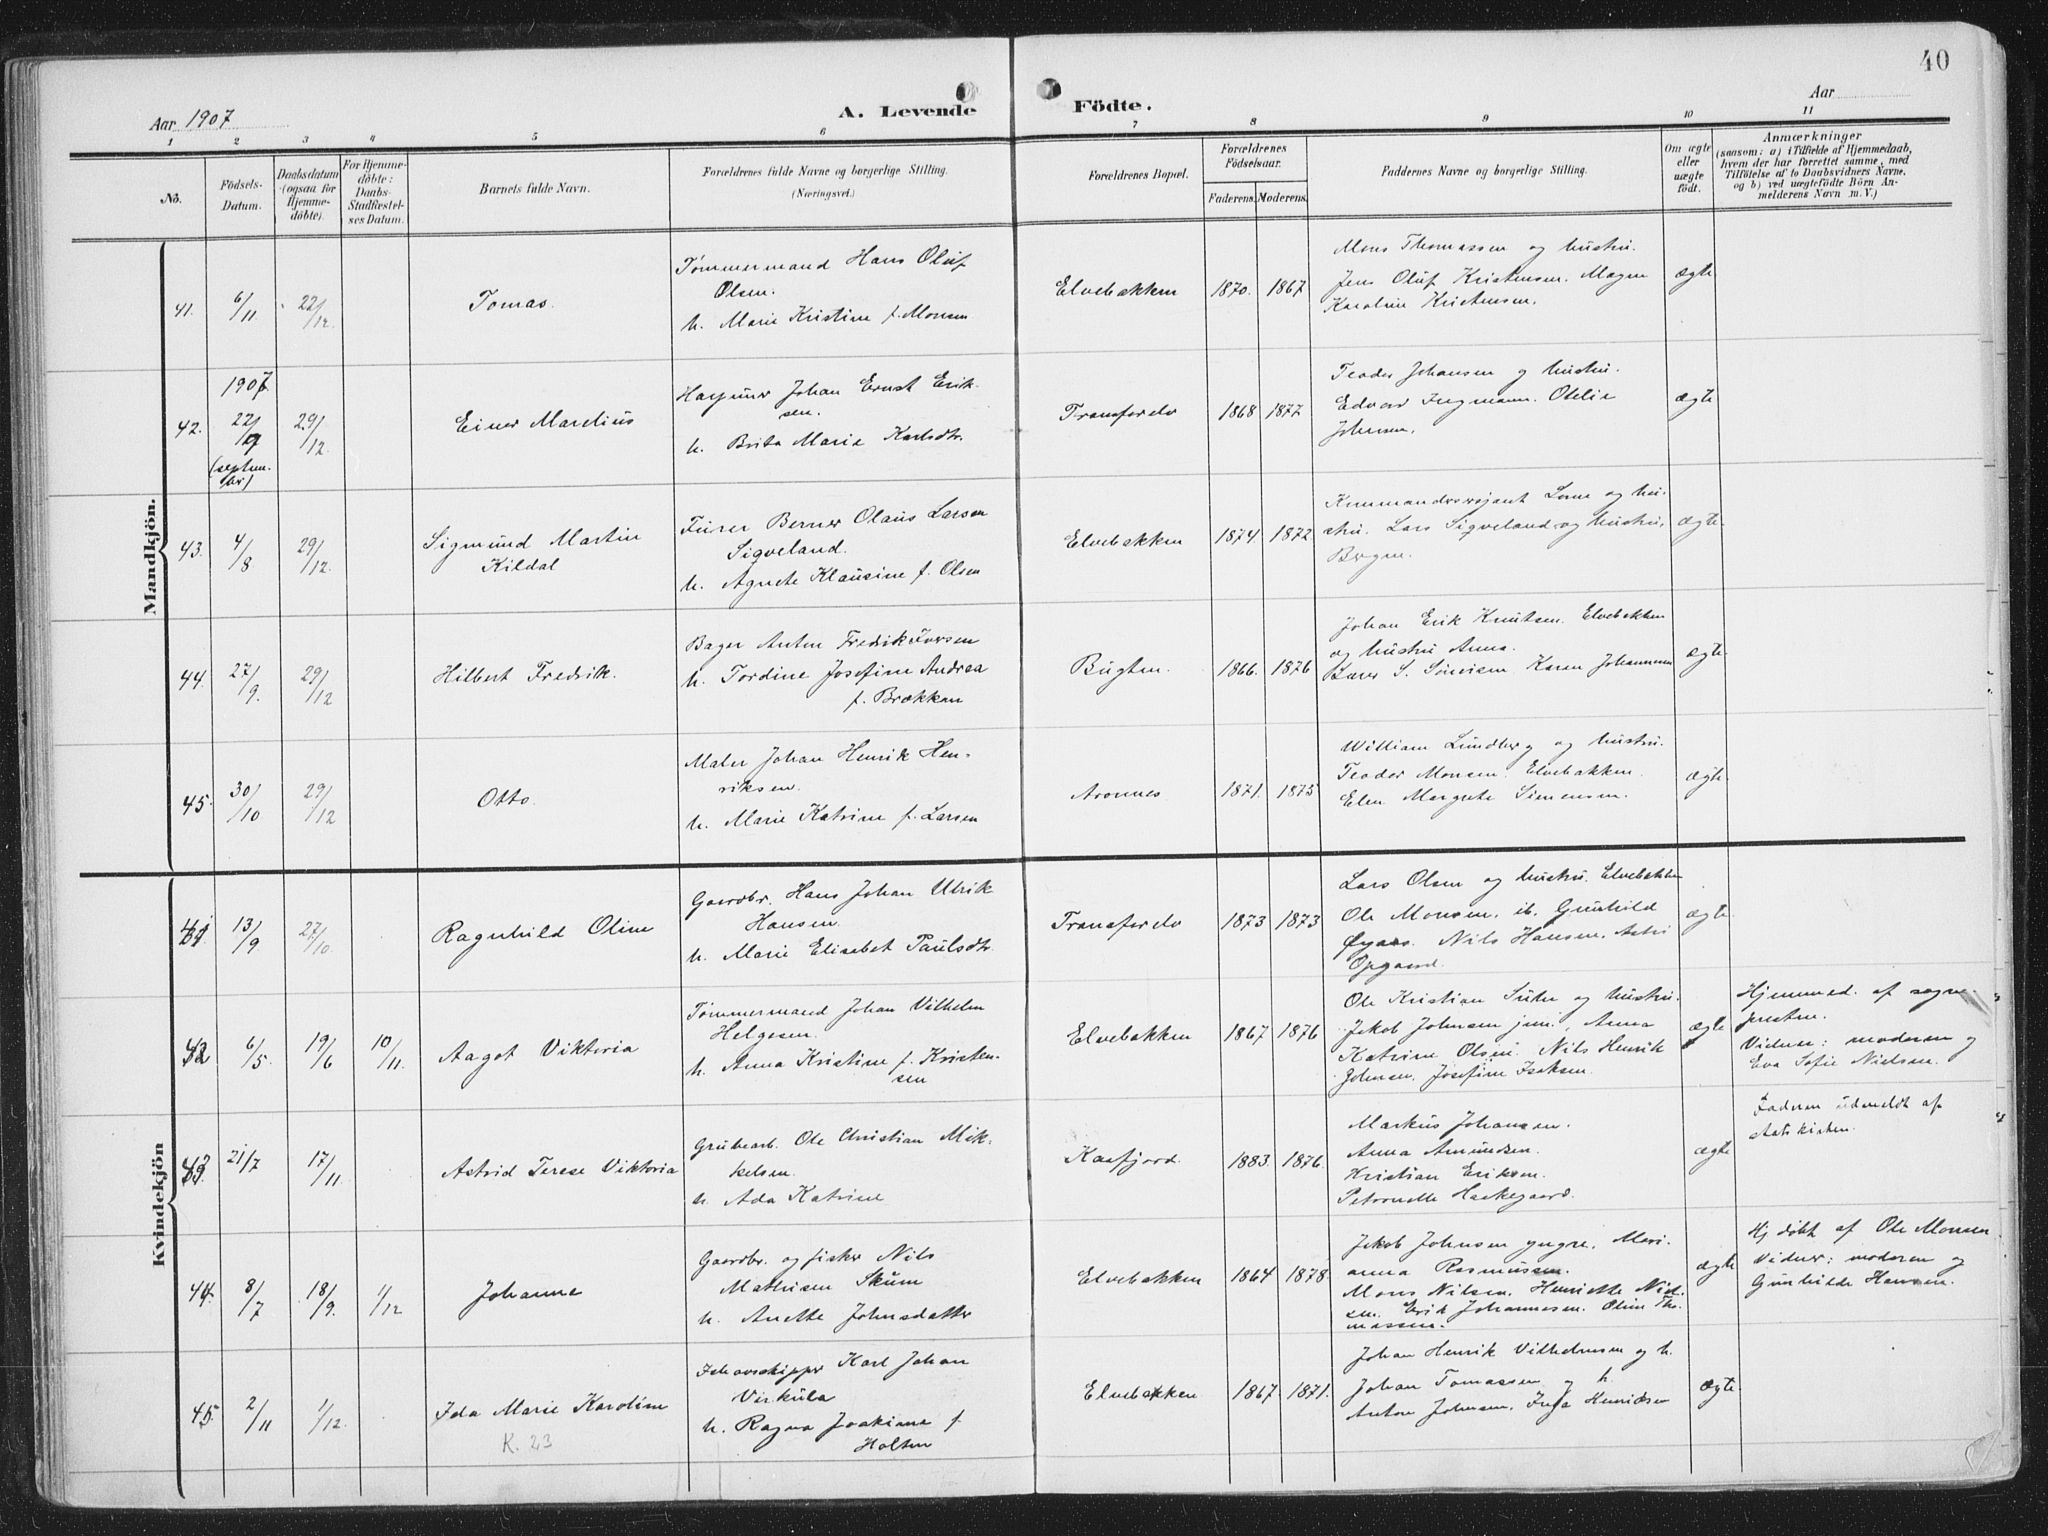 40
Aar 1907
A. Levende Födte.
Aar
1 2 3 4 5 6 7 8 9 10 11
No.
Födsels-
Datum.
Daabsdatum
(ogsaa for
Hjemme-
döbte).
For Hjemme-
döbte:
Daabs-
Stadfæstel-
ses Datum.
Barnets fulde Navn.
Forældrenes fulde Navne og borgerlige Stilling.
(Næringsvei.)
Forældrenes Bopæl.
Forældrenes
Födselsaar.
Faderens. Moderens.
Faddernes Navne og borgerlige Stilling.
Om ægte
eller
uægte
födt.
Anmærkninger
(saasom: a) i Tilfælde af Hjemmedaab,
hvem der har forrettet samme, med
Tilföielse af to Daabsvidners Navne,
og b) ved uægtefödte Börn An-
melderens Navn m. V.)
Mandkjön.
41. 6/11 22/12. Tomas.
Tømmermand Hans Oluf
Olsen.
h. Marie Kristine f. Monsen
Elvebakken 1870. 1867
Mons Thomassen og hustru.
Jens Oluf Kristensen. Magna
Karoline Kristensen.
ægte
1907.
42. 22/9 29/12. Einer Mardius
(septem-
ber)
Johan Ernst Erik-
sen.
h. Brita Marie Karlsdtr.
Transfardo 1868 1877
Teodor Johansen og hustru.
Edvar Ingmann. Otelie
Johnsen.
ægte
43. 4/8 29/12. Sigmund Martin
Kildal
Furer Berner Olaus Larsen
Sigveland.
h. Agnete Klausine f. Olsen
Elvebakken 1874. 1872
Kommandersersjant Lome og hu-
stru. Lars Sigveland og hustru.
Bergen.
ægte
44. 27/9. 29/12 Hilbert Fredrik.
Bager Anton Fredrik Iversen
h. Tordine Josefine Andrea
f. Brækken
Bugten. 1866. 1876
Johan Erik Knutsen. Elvebakken
og hustru Anna.
Lærer S. Karen Johannesen
ægte
45. 30/10 29/12 Otto.
Maler Johan Henrik Hen-
riksen.
h. Marie Katrine f. Larsen
Aronnes 1871. 1875
William Lundberg og hustru.
Teodor Monsen. Elvebakken.
Elen Margrete Simensen.
ægte
Kvindekjön
41 13/9. 27/10. Ragnhild Oline
Gaardbr. Hans Johan Ulrik
Hansen
h. Marie Elisebet Paulsdtr.
Transfardo 1873 1873
Lars Olsen og hustru. Elvebakken
Ole Monsen. ib. Gunhild
Øyaas. Nils Hansen. Astri
Opgaard.
ægte
42 6/5. 19/6 10/11. Aagot Viktoria
Tømmermand Johan Vilhelm
Helgesen.
h. Anna Kristine f. Kristen-
sen
Elvebakken 1867 1876
Ole Kristian Suhr og hustru.
Jakob Johnsen jun., Anna
Katrine Olsen. Nils Henrik
Johnsen. Josefine Isaksen.
ægte
Hjemmed. af sogne-
presten.
Vidner: moderen og
Eva Sofie Nielsen.
43. 21/7 17/11 Astrid Terese Viktoria
Grubearb. Ole Christian Mik-
kelsen.
h. Ada Katrine
Kaafjord. 1883. 1876.
Markus Johansen.
Anna Amundsen.
Kristian Eriksen.
Petronelle Haakegaard.
ægte
Faderen udmeldt af
statskirken.
44. 8/7 18/9. 1/12 Johanne
Gaardbr. og fisker Nils
Mathisen Skum
h. Anette Johnsdatter
Elvebakken 1864 1878.
Jakob Johnsen yngre. Mari-
anna Rasmussen.
Mons Nilsen. Henriette Niel-
sen. Erik Johannesen. Oline Tho-
massen.
ægte
Hj. døbt af Ole Monsen
Vidner: moderen og
Gunhilde Hansen.
45. 2/11 1/12. Ida Marie Karoline
K. 23
Karl Johan
Virkula
h. Ragna Joakime f
Holten
Elvebakken 1867. 1871.
Johan Henrik Vilhelmsen og h.
Johan Tomassen og h.
Anton Johnsen. Inga Henriksen
ægte.